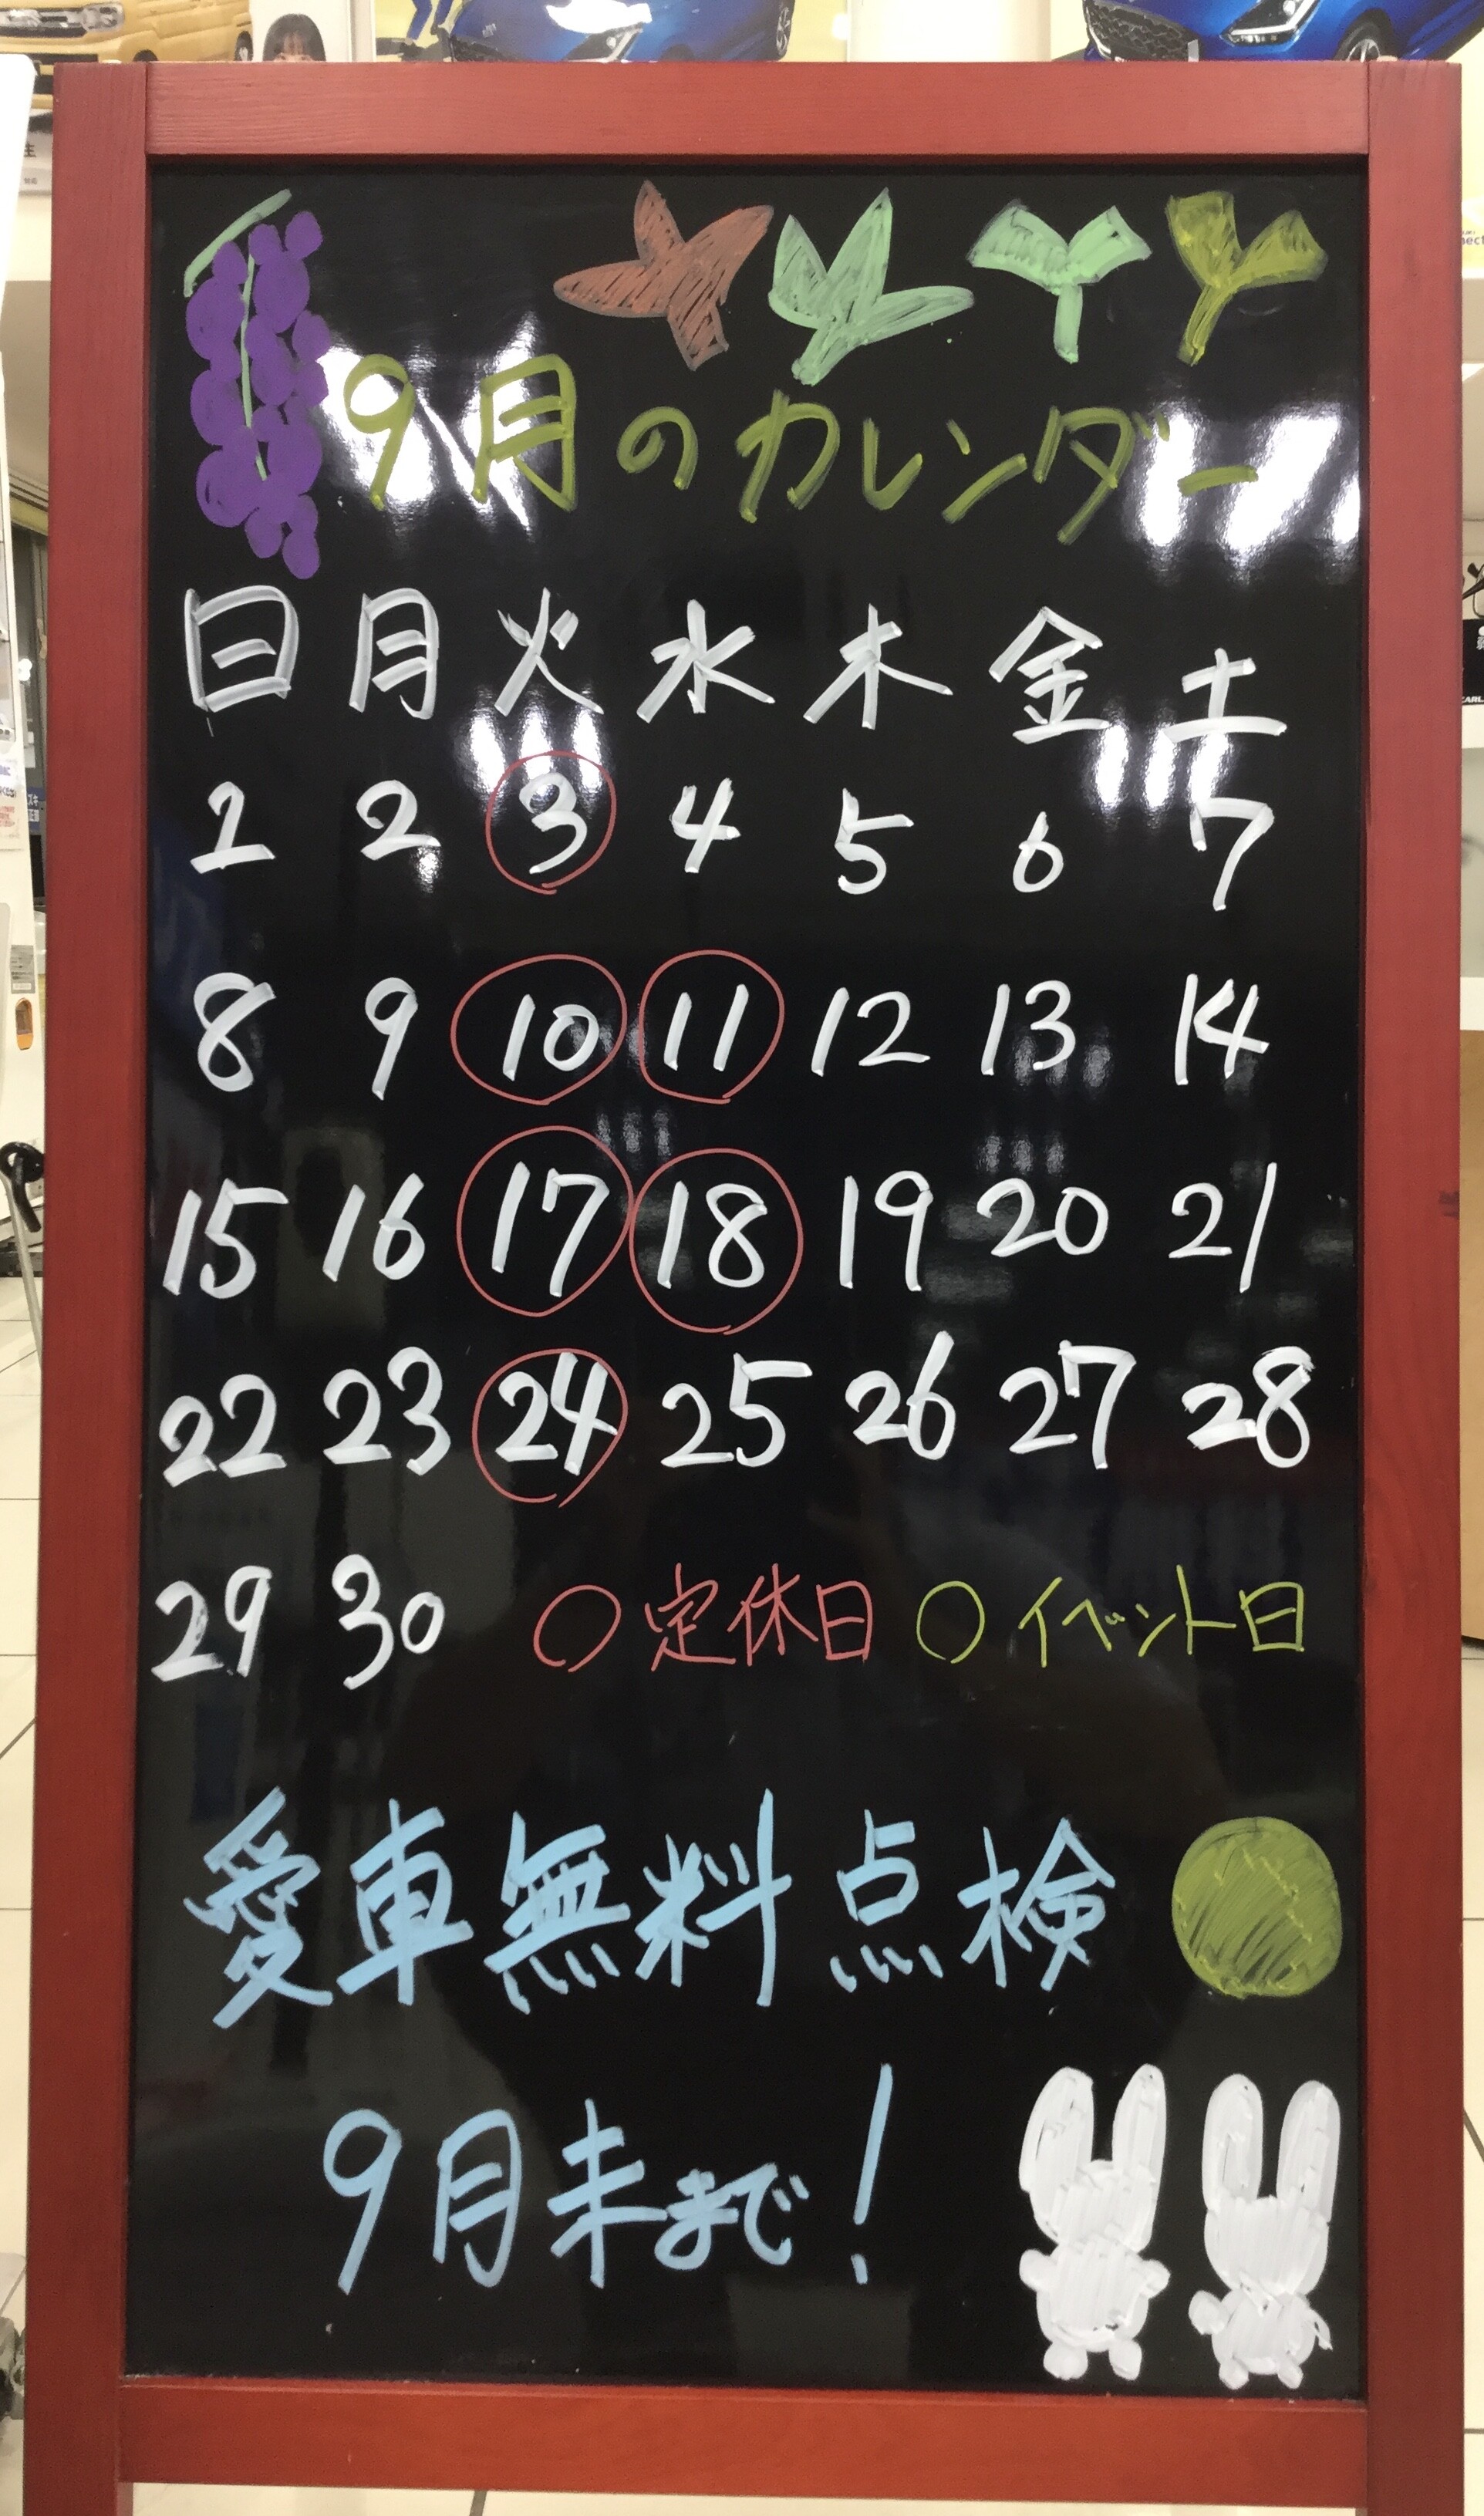 9月のカレンダー
日 月 火 水 木 金 土
1 2 3 4 5 6 7
8 9 10 11 12 13 14
15 16 17 18 19 20 21
22 23 24 25 26 27 28
29 30 ○定休日 ○イベント日
愛車無料点検
9月末まで!